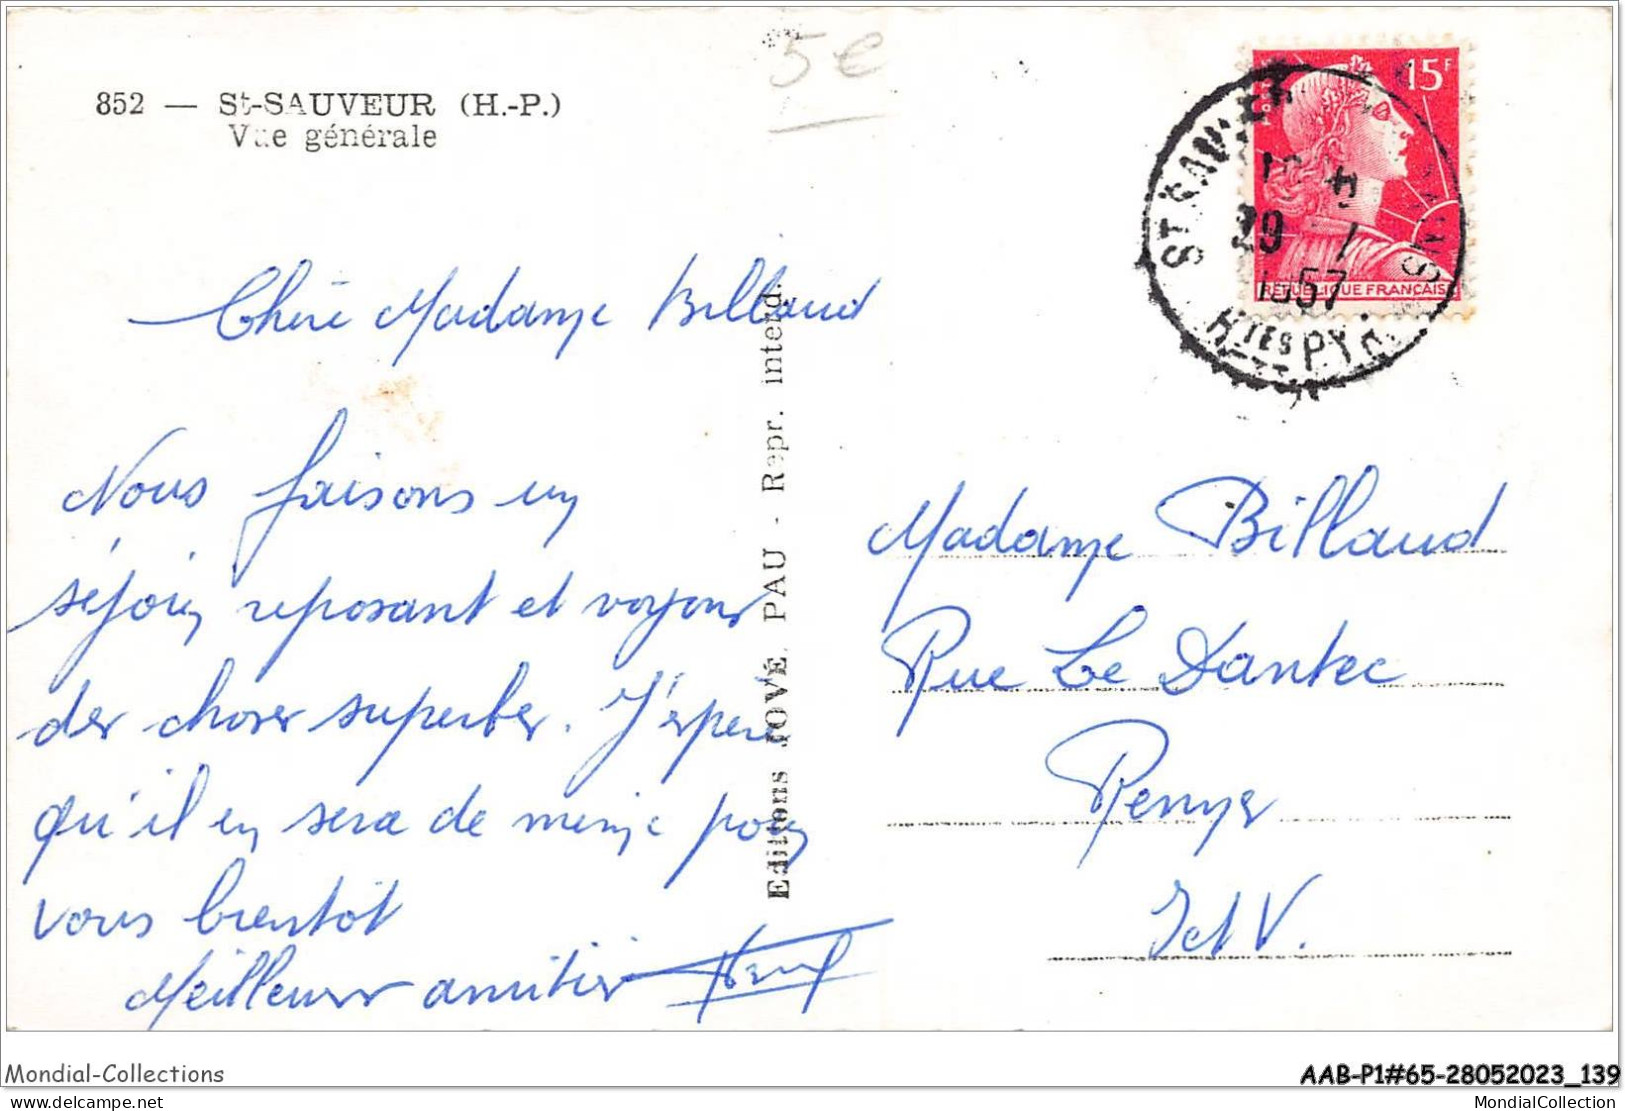 5€
852 — St-SAUVEUR (H.-P.)
Vue générale
15F
RÉPUBLIQUE FRANÇAISE
ST SAUVEUR
1957
HTES PYR.
Chère Madame Billaud
Nous faisons un
séjour reposant et voyons
des choses superbes. J'espère
qu'il en sera de même pour
vous bientôt
Meilleures amitiés
Editions JOVÉ, PAU - Repr. interd.
Madame Billaud
Rue Le Dantec
Rennes
I et V.
Mondial-Collections
AAB-P1#65-28052023_139
delcampe.net
MondialCollection